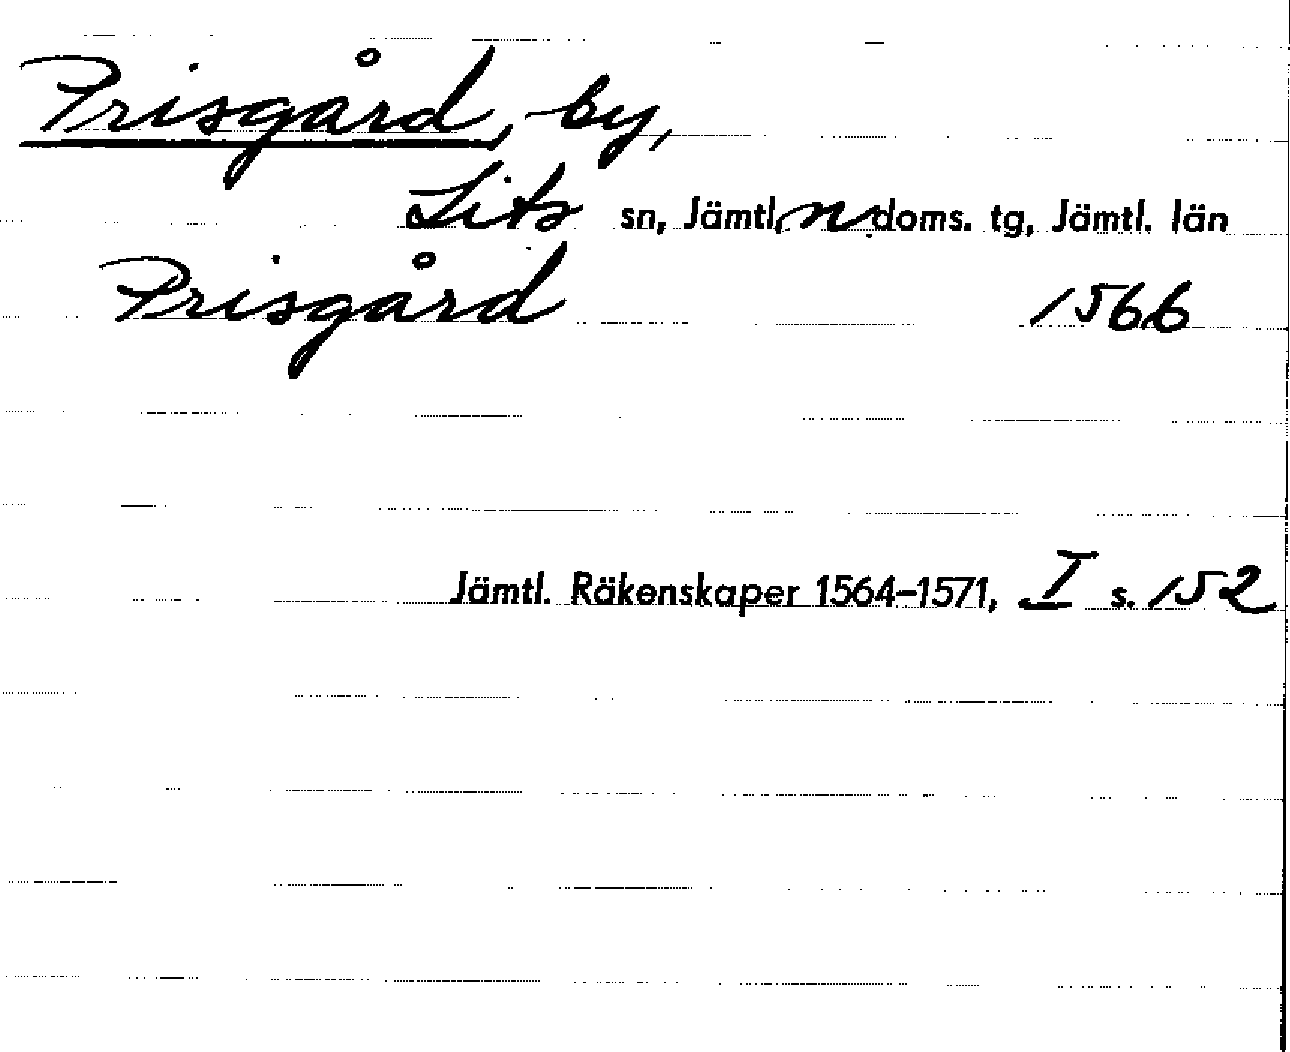 Prisgård, by,
Lits sn, Jämtl. n doms. tg, Jämtl. län
Prisgård 1566
Jämtl. Räkenskaper 1564–1571, I s. 152